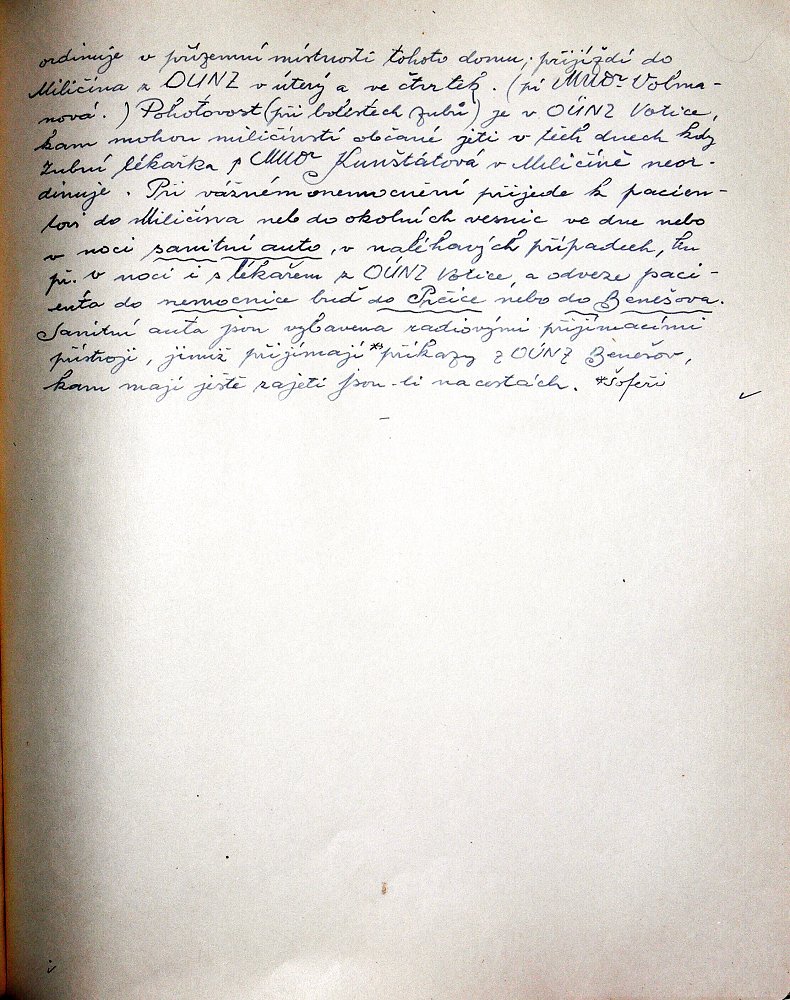 ordinuje v přízemní místnosti tohoto domu, přijíždí do
Miličína z OÚNZ v úterý a ve čtvrtek. (pí MUDr Volma-
nová.) Pohotovost (při bolestech zubů) je v OÚNZ Votice,
kam mohou miličínstí občané jeti v těch dnech kdy
zubní lékařka p MUDr Kunštátová v Miličíně neor-
dinuje. Při vážném onemocnění přijede k pacien-
tovi do Miličína neb do okolních vesnic ve dne nebo
v noci sanitní auto, v naléhavých případech,
př. v noci i s lékařem z OÚNZ Votice, a odveze paci-
enta do nemocnice buď do Pičice nebo do Benešova.
Sanitní auta jsou vybavena radiovými přijímacími
přístroji, jimiž přijímají *) příkazy z OÚNZ Benešov,
kam mají ještě zajeti jsou-li na cestách. *šoféři